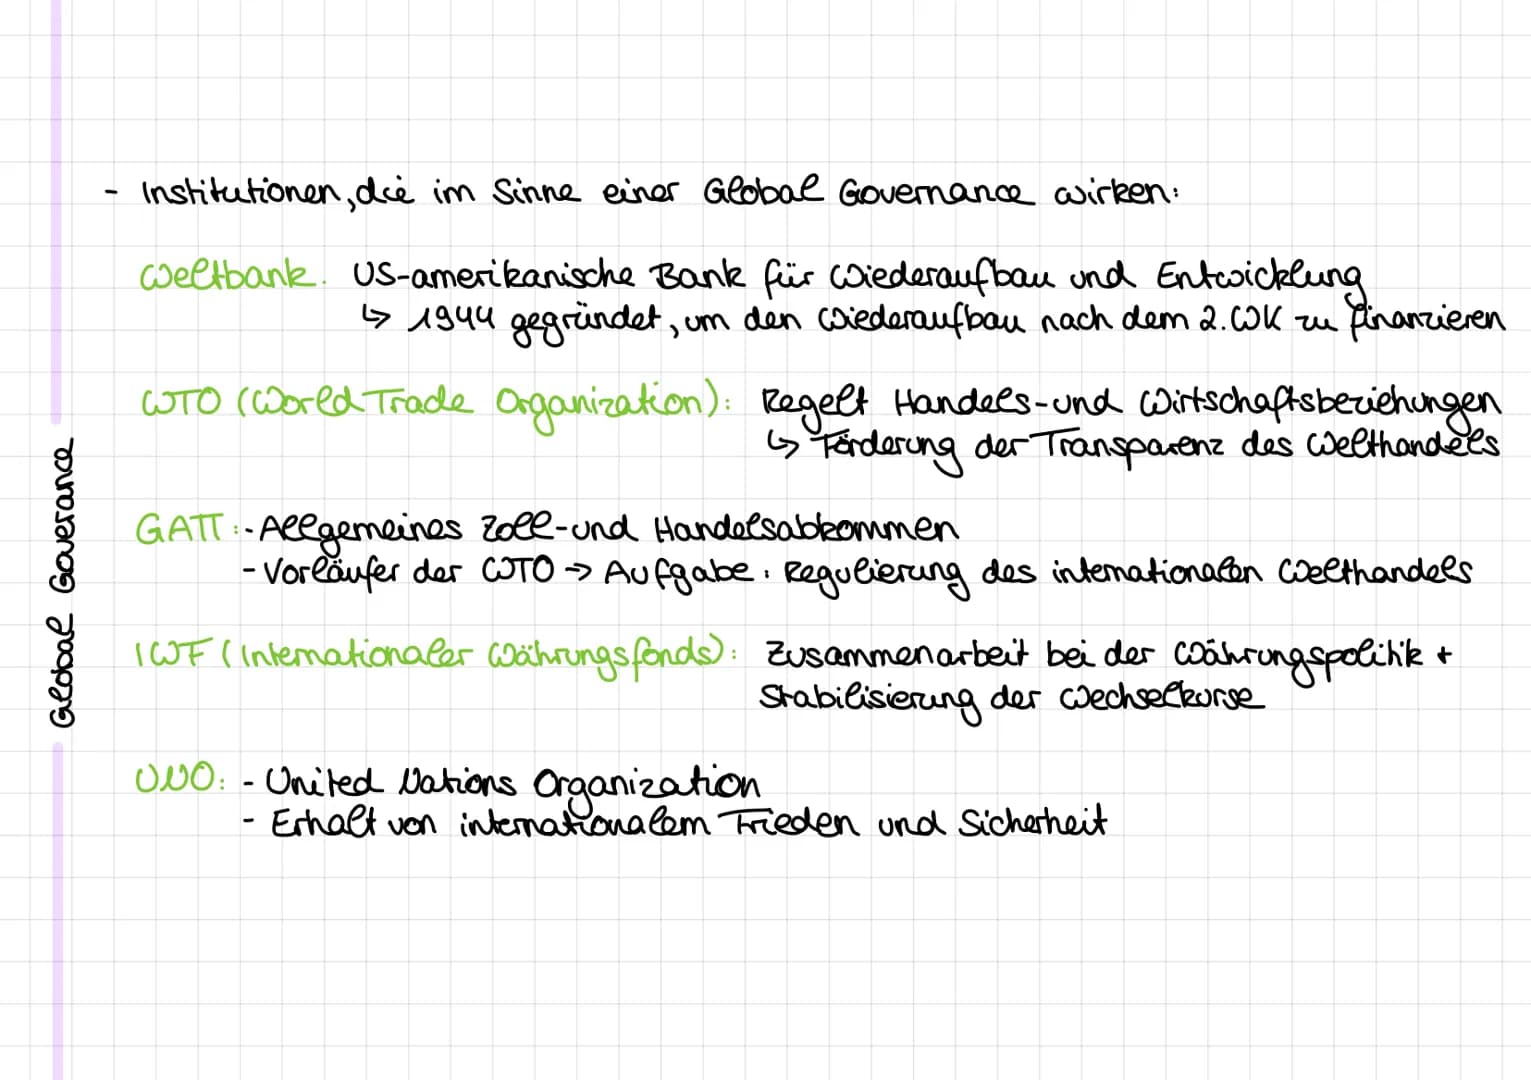 - Institutionen, die im Sinne einer Global Governance wirken:
Weltbank: US-amerikanische Bank für Wiederaufbau und Entwicklung
↳ 1944 gegründet, um den Wiederaufbau nach dem 2.WK zu finanzieren
WTO (World Trade Organization): Regelt Handels-und Wirtschaftsbeziehungen
↳ Förderung der Transparenz des Welthandels
GATT: - Allgemeines Zoll-und Handelsabkommen
- Vorläufer der WTO → Aufgabe: Regulierung des internationalen Welthandels
IWF (Internationaler Währungsfonds): Zusammenarbeit bei der Währungspolitik +
Stabilisierung der Wechselkurse
UNO: - United Nations Organization
- Erhalt von internationalem Frieden und Sicherheit
Global Goverance